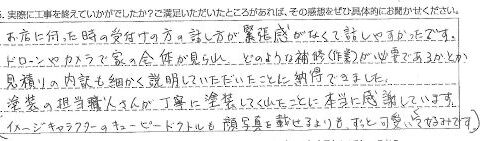 5. 実際に工事を終えていかがでしたか？ご満足いただいたところがあれば、その感想をぜひ具体的にお聞かせください。
お店に行った時の受付けの方の話し方が緊張感がなくて話しやすかったです。
ドローンやカメラで家の全体が見られ、どのような補修(作業)が必要であるかとか
見積りの内訳も細かく説明していただいたことに納得できました。
塗装の担当職人さんが、丁寧に塗装してくれたことに本当に感謝しています。
(イメージキャラクターのキューピードクトルも 顔写真を載せるよりも、ずっと可愛いくて好みです)